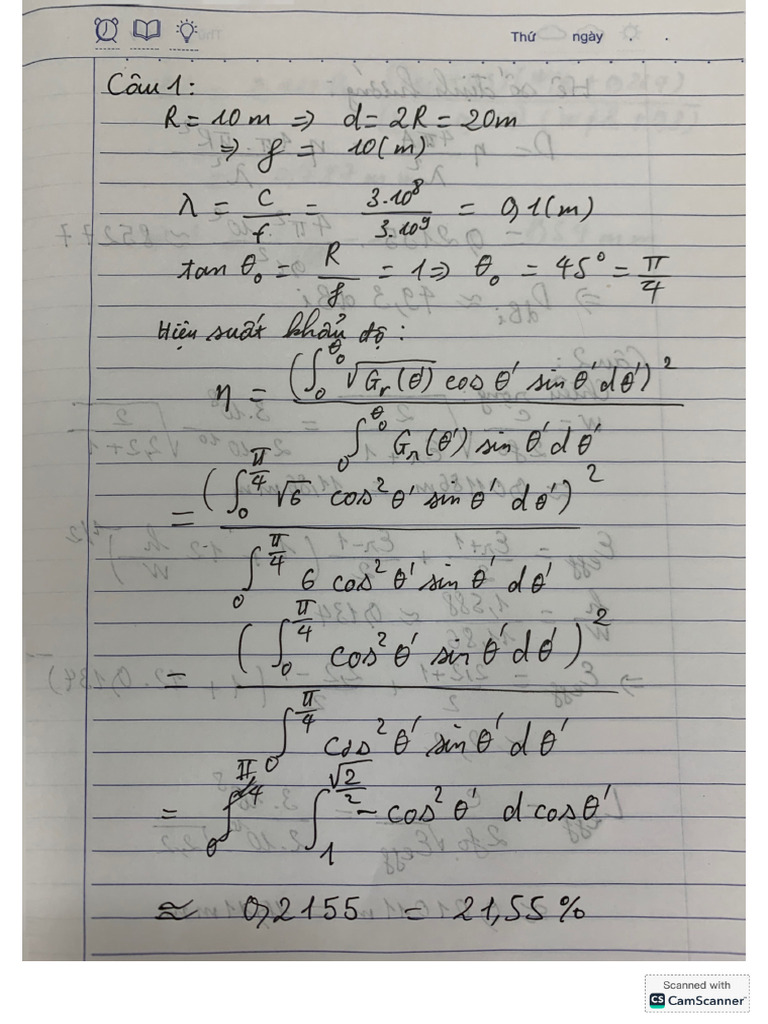 Thứ ngày . .
Câu 1:
R = 10 m ⇒ d = 2R = 20m
⇒ f = 10(m)
λ = c/f = 3.10⁸/3.10⁹ = 0,1(m)
tan θ₀ = R/f = 1 ⇒ θ₀ = 45° = π/4
Hiệu suất khẩu độ:
η = (∫₀^θ₀ √Gr(θ') cos θ' sin θ' dθ')² / ∫₀^θ₀ Gr(θ') sin θ' dθ'
= (∫₀^(π/4) √6 cos² θ' sin θ' dθ')² / ∫₀^(π/4) 6 cos² θ' sin θ' dθ'
= (∫₀^(π/4) cos² θ' sin θ' dθ')² / ∫₀^(π/4) cos² θ' sin θ' dθ'
= ∫₀^(π/4) ∫₁^(√2/2) - cos² θ' d cos θ'
≈ 0,2155 = 21,55 %
Scanned with
CS CamScanner